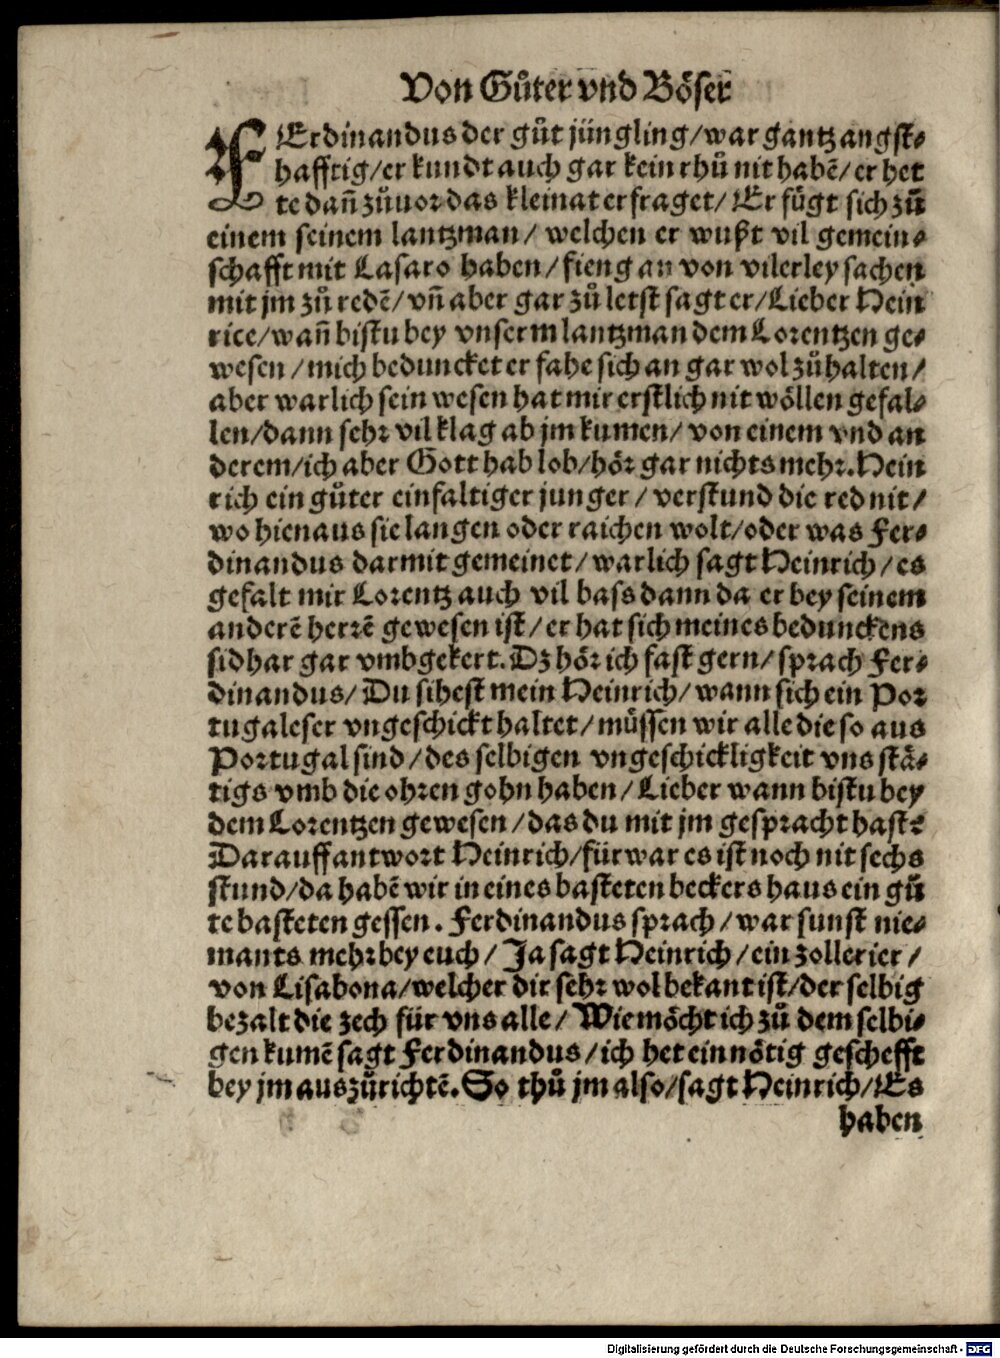 Von Gůter vnd Böser
FErdinandus der gůt jüngling/war gantz angst⸗
hafftig/er kundt auch gar kein rhů nit habẽ/er het
te dañ zůuor das kleinat erfraget/Er fůgt sich zů
einem seinem lantzman/welchen er wußt vil gemein⸗
schafft mit Lasaro haben/fieng an von vilerley sachen
mit jm zů redẽ/vñ aber gar zů letst sagt er/Lieber Hein
rice/wañ bistu bey vnserm lantzman dem Lorentzen ge⸗
wesen/mich beduncket er fahe sich an gar wol zůhalten/
aber warlich sein wesen hat mir erstlich nit wöllen gefal⸗
len/dann sehr vil klag ab jm kumen/von einem vnd an
derem/ich aber Gott hab lob/hör gar nichts mehr. Hein
rich ein gůter einfaltiger junger/verstund die red nit/
wo hienaus sie langen oder raichen wolt/oder was Fer⸗
dinandus darmit gemeinet/warlich sagt Heinrich/es
gefalt mir Lorentz auch vil bass dann da er bey seinem
anderẽ herrẽ gewesen ist/er hat sich meines bedunckens
sidhar gar vmbgekert. Dz hör ich fast gern/sprach Fer⸗
dinandus/Du sihest mein Heinrich/wann sich ein Por
tugaleser vngeschickt haltet/müssen wir alle die so aus
Portugal sind/des selbigen vngeschickligkeit vns stä⸗
tigs vmb die ohren gohn haben/Lieber wann bistu bey
dem Lorentzen gewesen/das du mit jm gespracht hast?
Darauff antwort Heinrich/fürwar es ist noch nit sechs
stund/da habẽ wir in eines basteten beckers haus ein gů
te basteten gessen. Ferdinandus sprach/war sunst nie⸗
mants mehr bey euch/Ja sagt Heinrich/ein zollerier/
von Lisabona/welcher dir sehr wol bekant ist/der selbig
bezalt die zech für vns alle/Wie möcht ich zů dem selbi⸗
gen kumẽ sagt Ferdinandus/ich het ein nötig geschefft
bey jm auszůrichtẽ. So thů jm also/sagt Heinrich/Es
haben
Digitalisierung gefördert durch die Deutsche Forschungsgemeinschaft - DFG